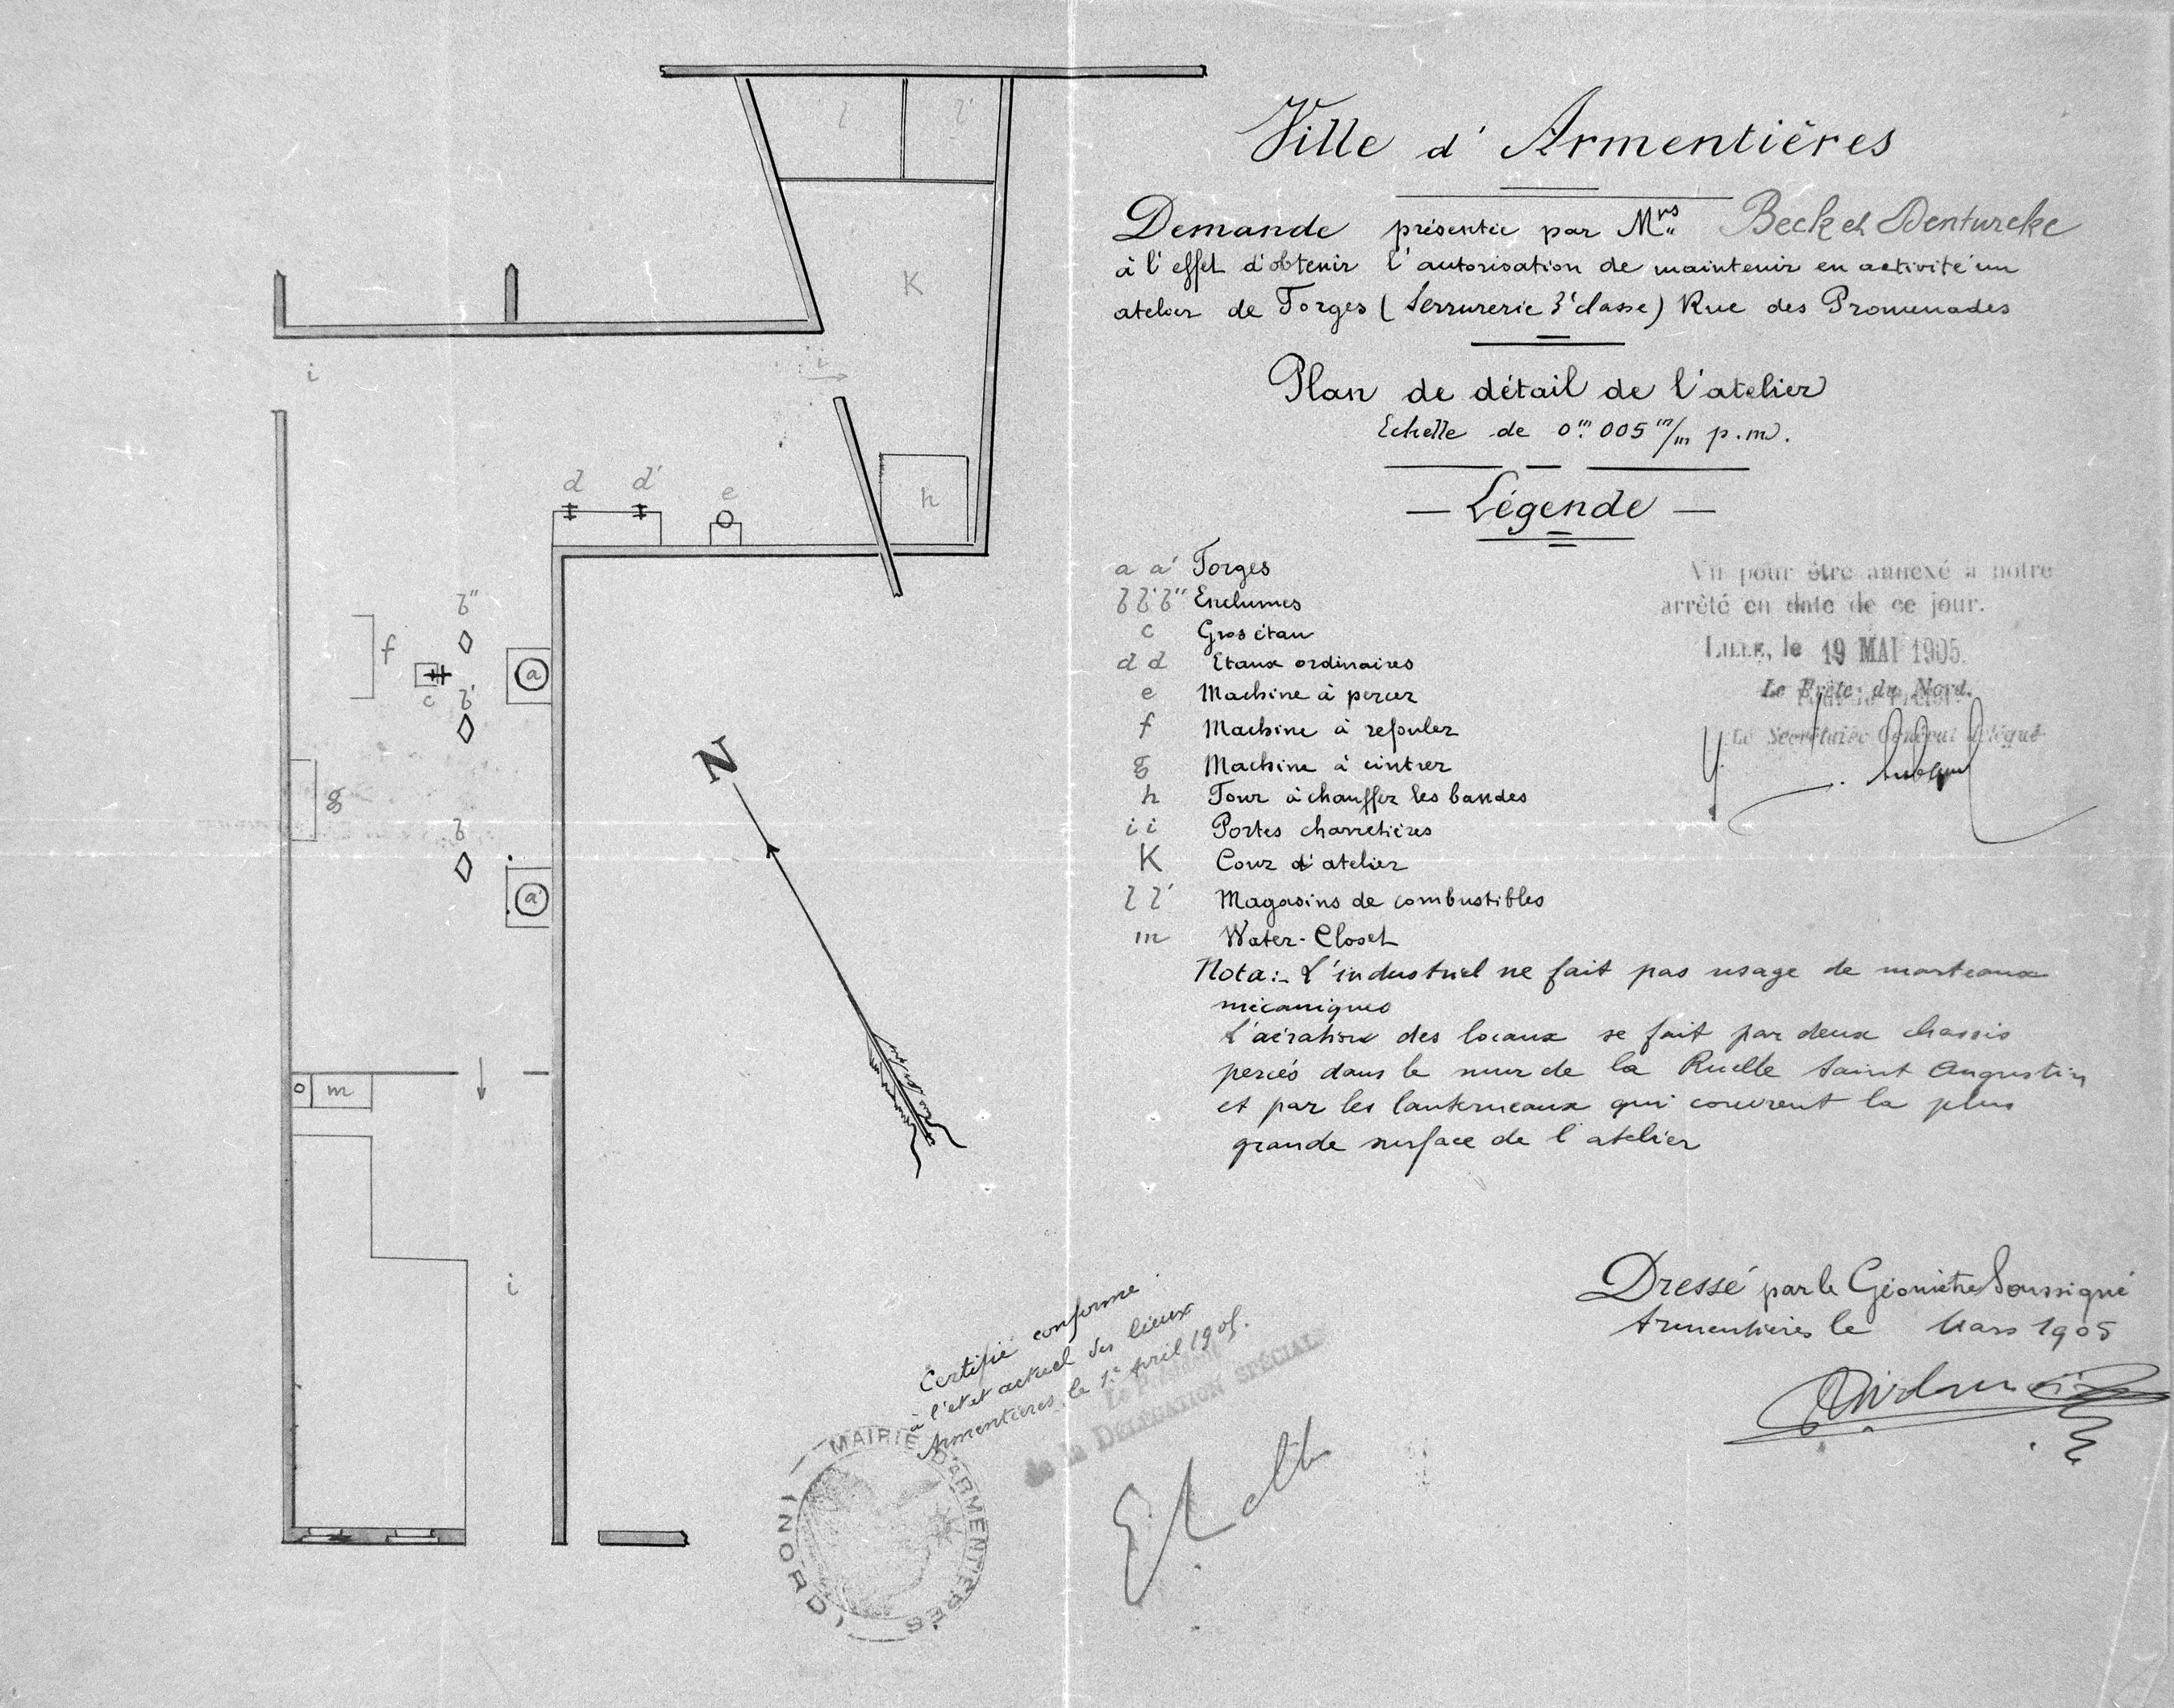 Ville d'Armentières
Demande présentée par Mrs Beck et Denturcke
à l'effet d'obtenir l'autorisation de maintenir en activité un
atelier de Forges (Serrurerie 3e classe) Rue des Promenades
Plan de détail de l'atelier
Echelle de 0m.005 m/m p.m.
— Légende —
a a' Forges
b b' b'' Enclumes
c Gros étau
d d Etaux ordinaires
e Machine à percer
f Machine à refouler
g Machine à cintrer
h Four à chauffer les bandes
i i Portes charretières
K Cour d'atelier
l l' Magasins de combustibles
m Water-Closet
Nota:- L'industriel ne fait pas usage de marteaux
mécaniques
L'aération des locaux se fait par deux chassis
percés dans le mur de la Ruelle Saint Augustin
et par les lanterneaux qui couvrent la plus
grande surface de l'atelier
Vu pour être annexé à notre
arrêté en date de ce jour.
LILLE, le 19 MAI 1905.
Le Préfet du Nord.
Le Secrétaire Général délégué
Dressé par le Géomètre Soussigné
Armentières le Mars 1905
Certifié conforme
à l'état actuel des lieux
Armentières, le 1er Avril 1905.
Le Président
de la DÉLÉGATION SPÉCIALE
MAIRIE D'ARMENTIÈRES
(NORD)
l l'
K
i
i
d d' e
h
b''
f
a
c b'
g
b
a'
N
o m
i